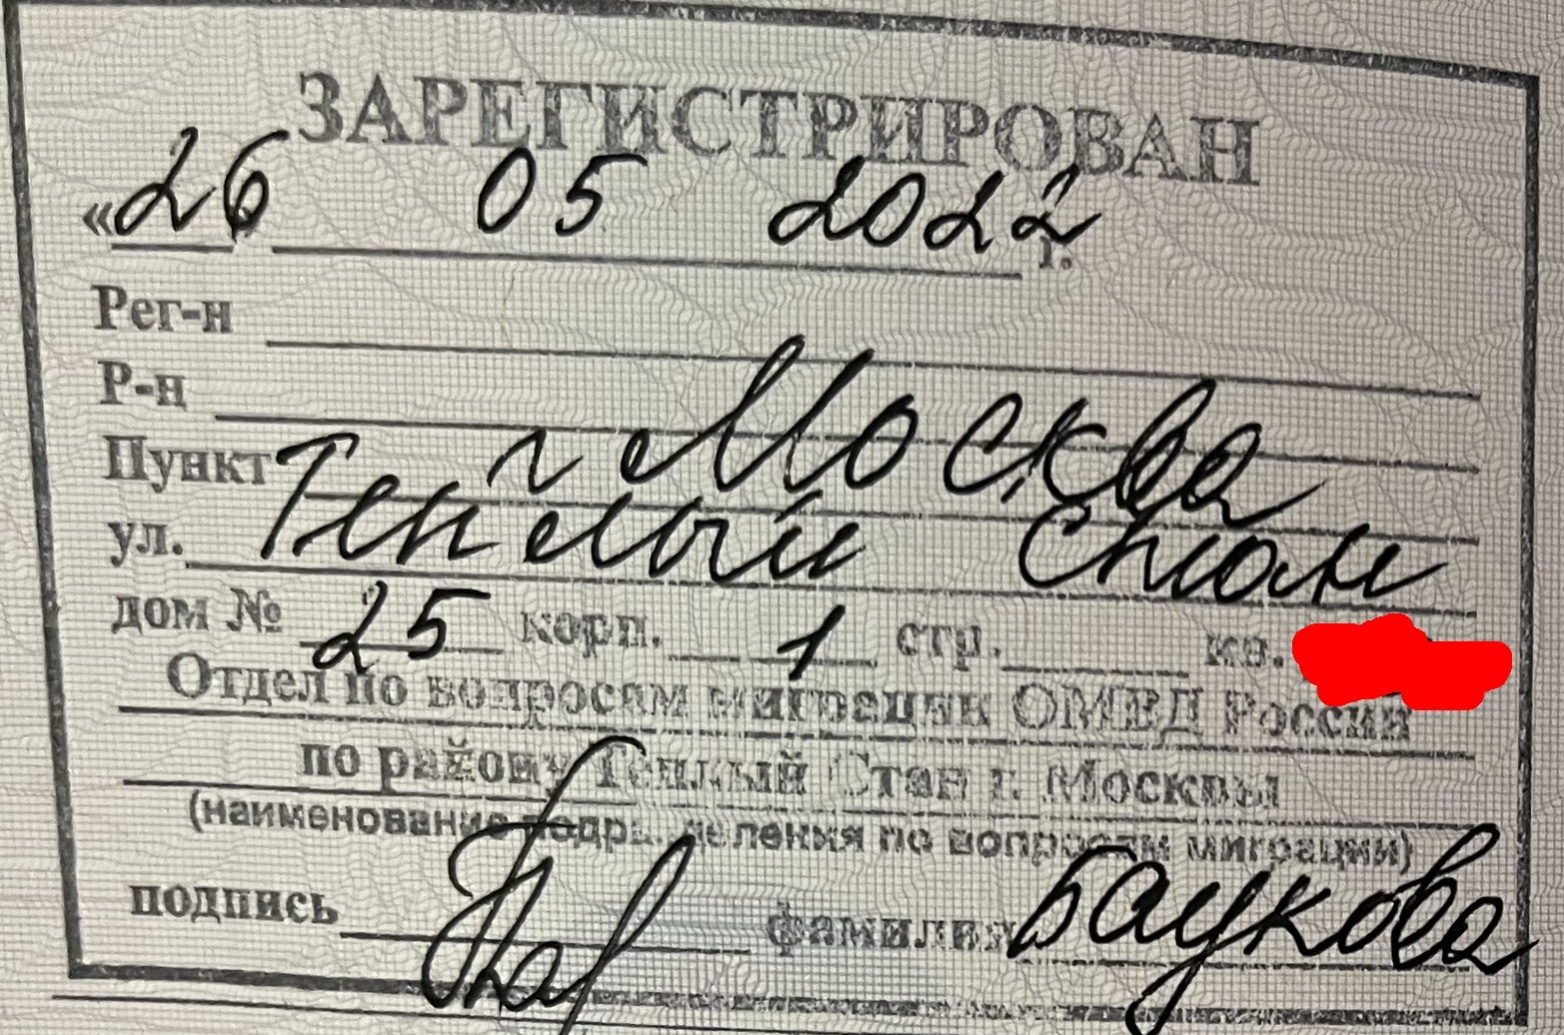 ЗАРЕГИСТРИРОВАН
«26 05 2022 г.
Рег-н
Р-н
Пункт г Москва
ул. Теплый Стан
дом № 25 корп. 1 стр. кв.
Отдел по вопросам миграции ОМВД России
по району Теплый Стан г. Москвы
(наименование подразделения по вопросам миграции)
подпись фамилия Баукова